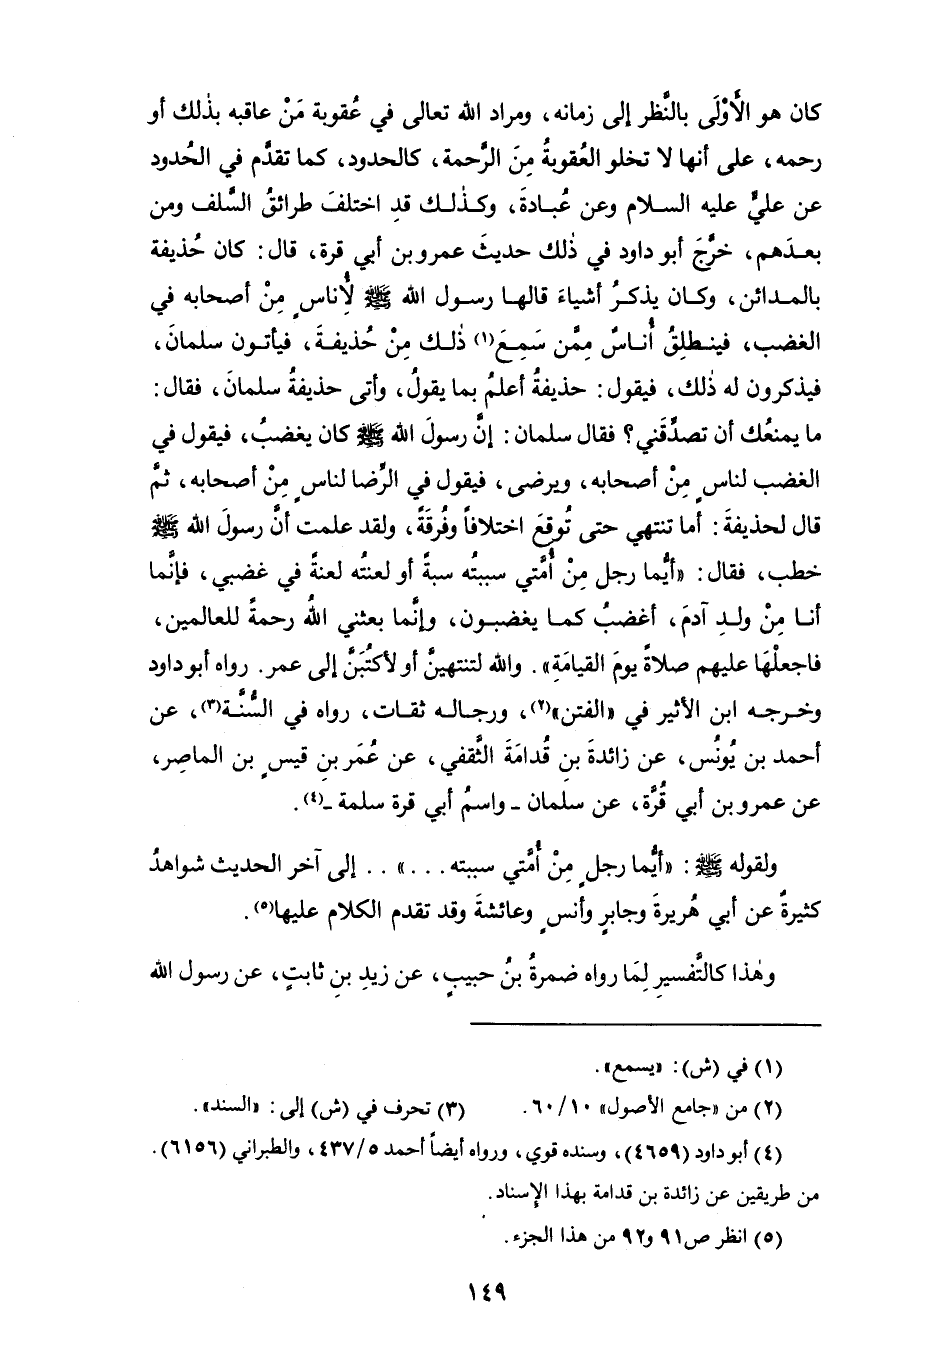 كان هو الأَوْلَى بالنَّظر إلى زمانه، ومراد الله تعالى في عُقوبة مَنْ عاقبه بذٰلك أو
رحمه، على أنها لا تخلو العُقوبةُ مِنَ الرَّحمة، كالحدود، كما تقدَّم في الحُدود
عن عليٍّ عليه السلام وعن عُبادةَ، وكذٰلك قدِ اختلفَ طرائقُ السَّلف ومن
بعدَهم، خرَّجَ أبو داود في ذٰلك حديثَ عمرو بن أبي قرة، قال: كان حُذيفة
بالمدائن، وكان يذكرُ أشياءَ قالها رسول الله ﷺ لأُناسٍ مِنْ أصحابه في
الغضب، فينطلِقُ أُناسٌ مِمَّن سَمِعَ(١) ذٰلك مِنْ حُذيفةَ، فيأتون سلمانَ،
فيذكرون له ذٰلك، فيقول: حذيفةُ أعلمُ بما يقولُ، وأتى حذيفةُ سلمانَ، فقال:
ما يمنعُك أن تصدِّقَني؟ فقال سلمان: إنَّ رسولَ الله ﷺ كان يغضبُ، فيقول في
الغضب لناسٍ مِنْ أصحابه، ويرضى، فيقول في الرِّضا لناسٍ مِنْ أصحابه، ثمَّ
قال لحذيفةَ: أما تنتهي حتى تُوقِعَ اختلافاً وفُرقَةً، ولقد علمت أنَّ رسولَ الله ﷺ
خطب، فقال: «أيُّما رجل مِنْ أُمَّتي سببتُه سبةً أو لعنتُه لعنةً في غضبي، فإنَّما
أنا مِنْ ولدِ آدمَ، أغضبُ كما يغضبون، وإنَّما بعثني اللهُ رحمةً للعالمين،
فاجعلْهَا عليهم صلاةً يومَ القيامَةِ». والله لتنتهينَّ أو لأكتُبَنَّ إلى عمر. رواه أبو داود
وخرجه ابن الأثير في «الفتن»(٢)، ورجاله ثقات، رواه في السُّنَّة(٣)، عن
أحمد بن يُونُس، عن زائدةَ بنِ قُدامَةَ الثَّقفي، عن عُمَر بنِ قيسٍ بن الماصِر،
عن عمرو بن أبي قُرَّة، عن سلمان ـ واسمُ أبي قرة سلمة ـ(٤).
ولقوله ﷺ: «أيُّما رجلٍ مِنْ أُمَّتي سببته...».. إلى آخر الحديث شواهدُ
كثيرةٌ عن أبي هُريرةَ وجابرٍ وأنسٍ وعائشةَ وقد تقدم الكلام عليها(٥).
وهٰذا كالتَّفسيرِ لِمَا رواه ضمرةُ بنُ حبيبٍ، عن زيدِ بنِ ثابتٍ، عن رسول الله
(١) في (ش): «يسمع».
(٢) من «جامع الأصول» ٦٠/١٠. (٣) تحرف في (ش) إلى: «السند».
(٤) أبو داود (٤٦٥٩)، وسنده قوي، ورواه أيضاً أحمد ٤٣٧/٥، والطبراني (٦١٥٦).
من طريقين عن زائدة بن قدامة بهذا الإسناد.
(٥) انظر ص٩١ و٩٢ من هذا الجزء.
١٤٩